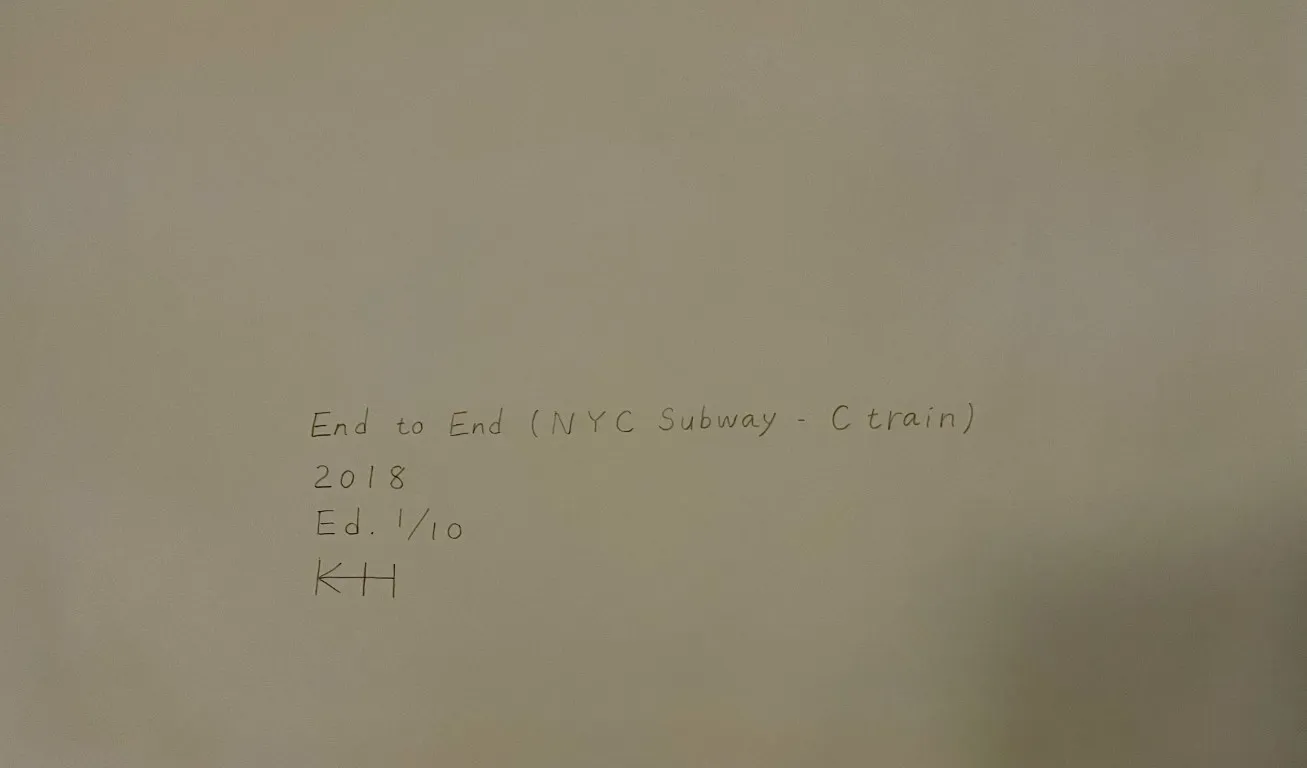 End to End (NYC Subway - C train)
2018
Ed. 1/10
KH